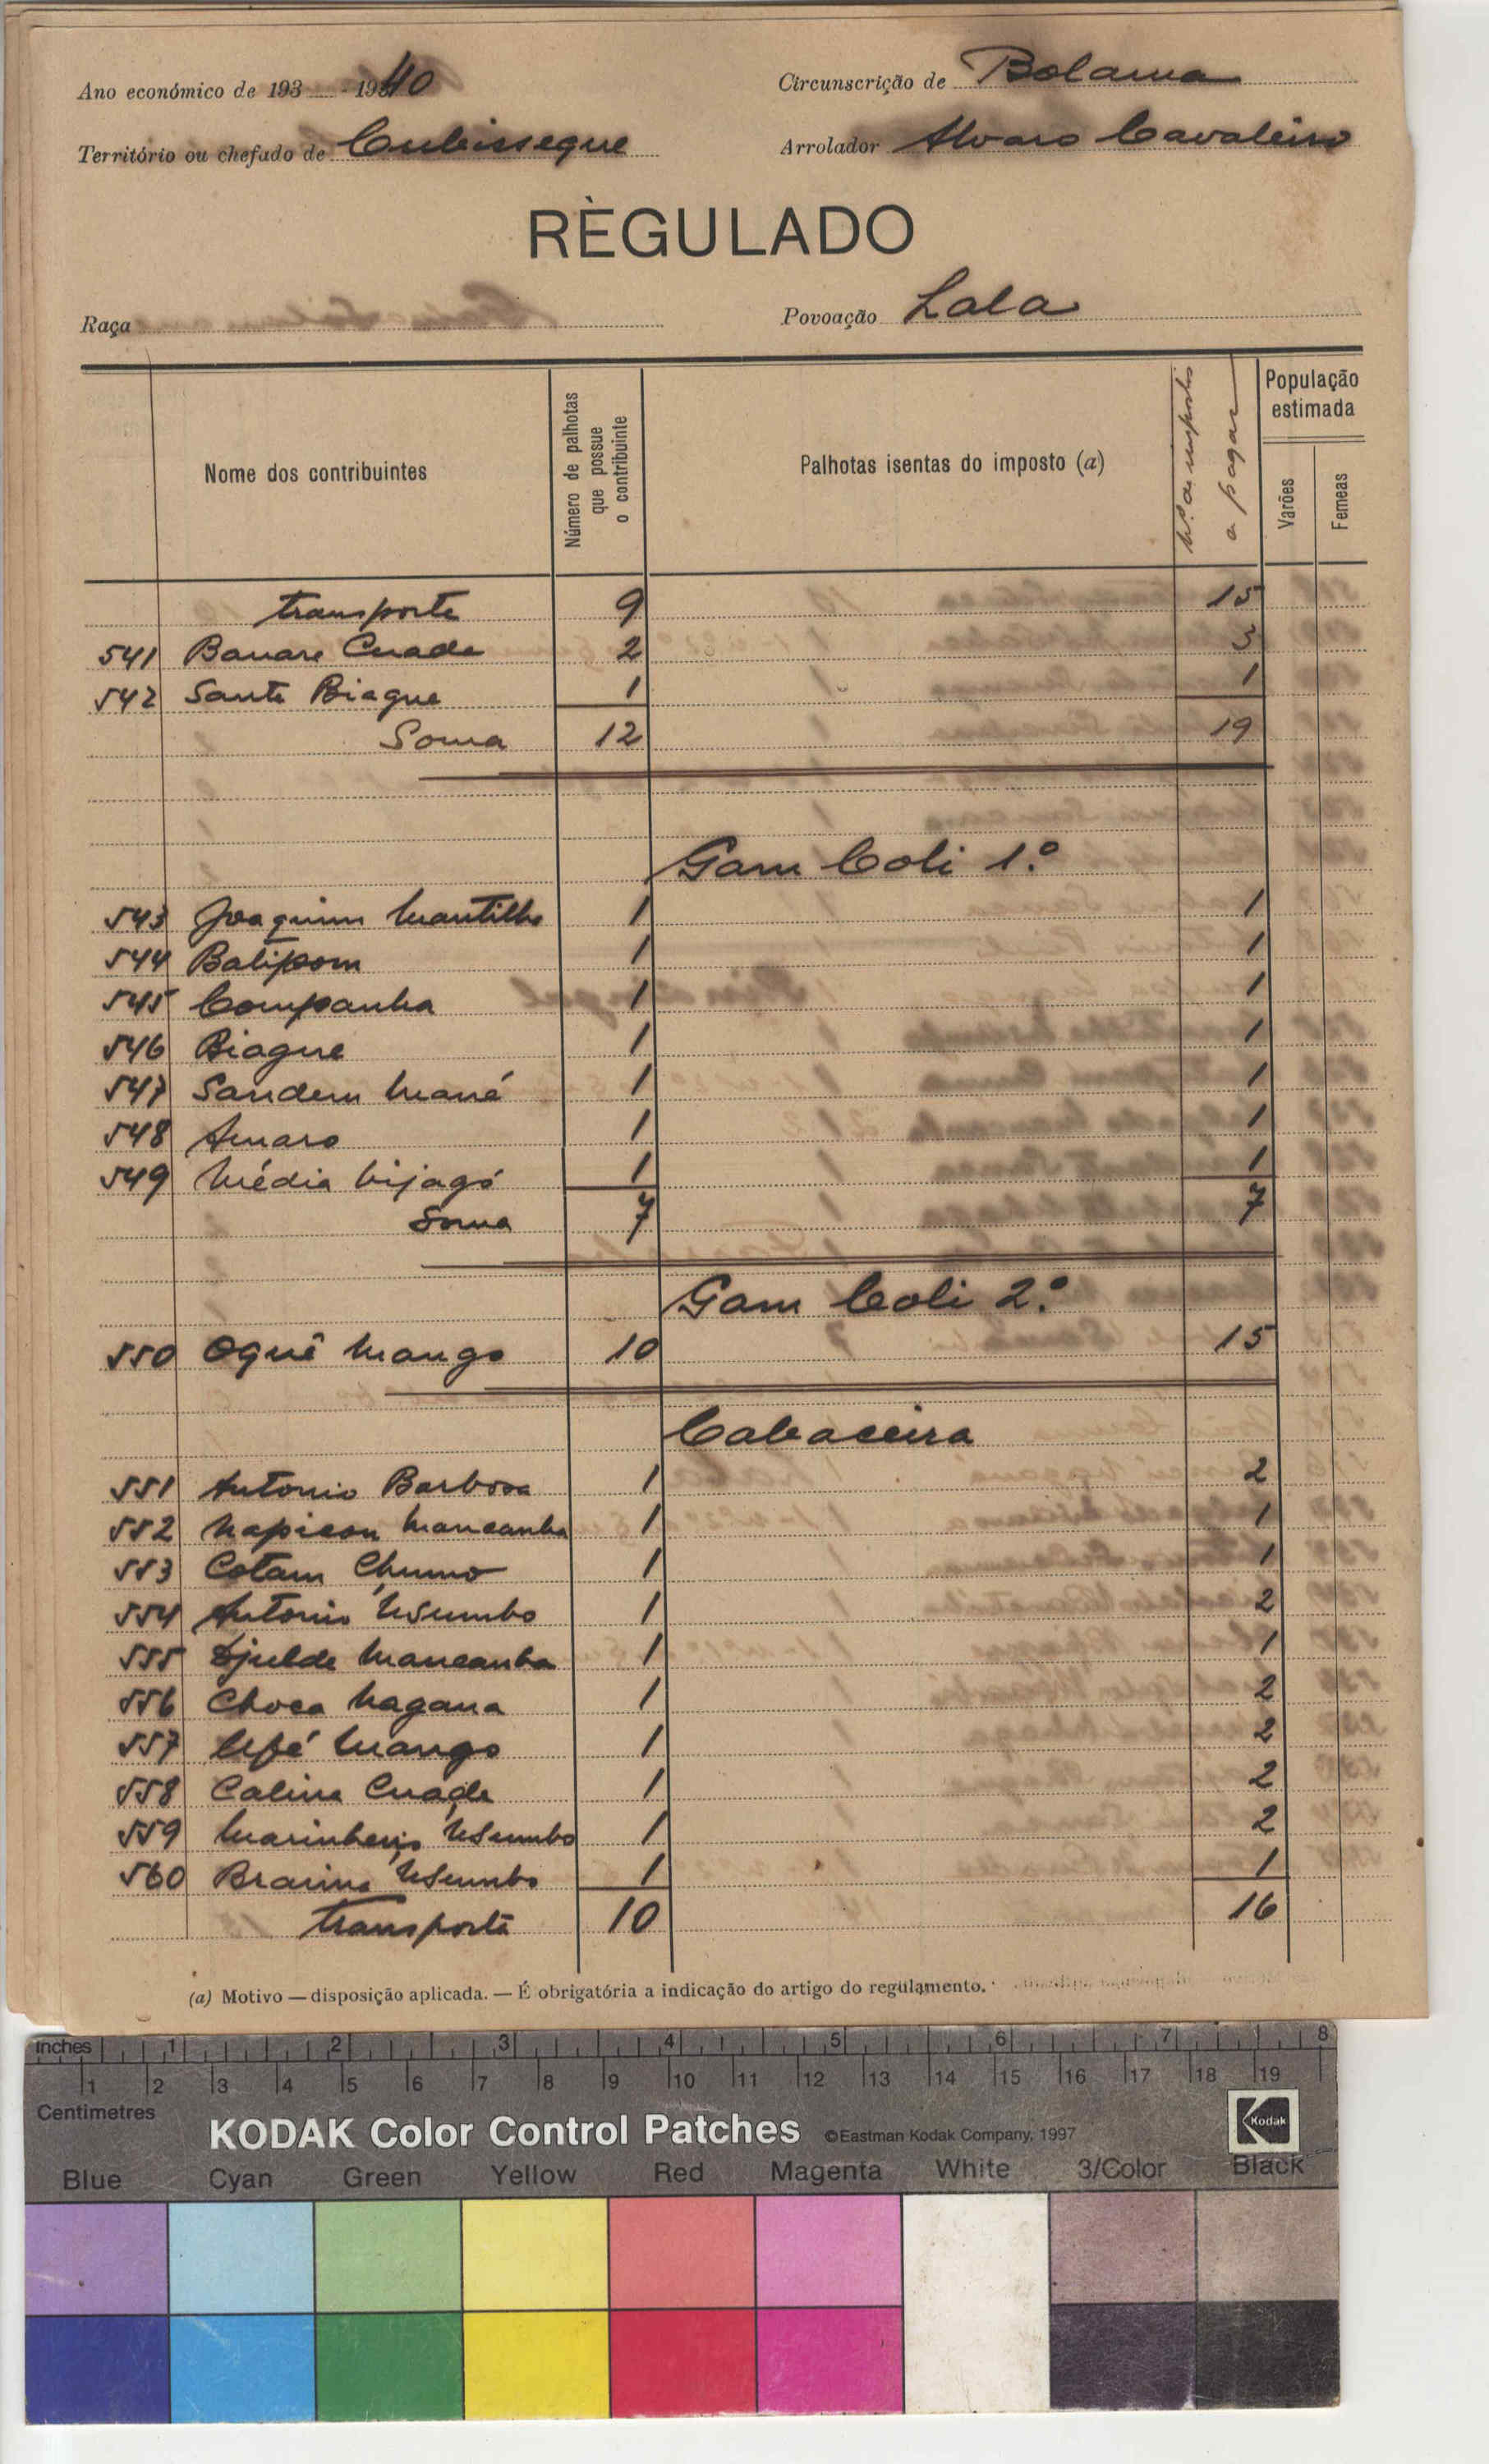 Ano económico de 193 - 1940
Circunscrição de Bolama
Território ou chefado de Cubisseque
Arrolador Alvaro Cavaleiro
RÈGULADO
Raça
Povoação Lala
Nome dos contribuintes
Número de palhotas que possue o contribuinte
Palhotas isentas do imposto (a)
N.º de impostos a pagar
População estimada
Varões
Femeas
transporte 9 15
541 Banare Cuade 2 3
542 Sante Biague 1 1
Soma 12 19
Gam Coli 1.º
543 Joaquim Mantilho 1 1
544 Batipom 1 1
545 Companha 1 1
546 Biague 1 1
547 Sandem Mané 1 1
548 Amaro 1 1
549 Média bijagó 1 1
Soma 7 7
Gam Coli 2.º
550 Oquê Mango 10 15
Cabaceira
551 Antonio Barbosa 1 2
552 Napicou Mancanha 1 1
553 Cotam Chumo 1 1
554 Antonio Usumbo 1 2
555 Djulde Mancanha 1 1
556 Choca Nagana 1 2
557 Mango 1 2
558 Calina Cuade 1 2
559 Marinheiro Usumbo 1 2
560 Braima Usumbo 1 1
transporte 10 16
(a) Motivo — disposição aplicada. — É obrigatória a indicação do artigo do regulamento.
inches 1 2 3 4 5 6 7 8
1 2 3 4 5 6 7 8 9 10 11 12 13 14 15 16 17 18 19
Centimetres
KODAK Color Control Patches ©Eastman Kodak Company, 1997 Kodak
Blue Cyan Green Yellow Red Magenta White 3/Color Black